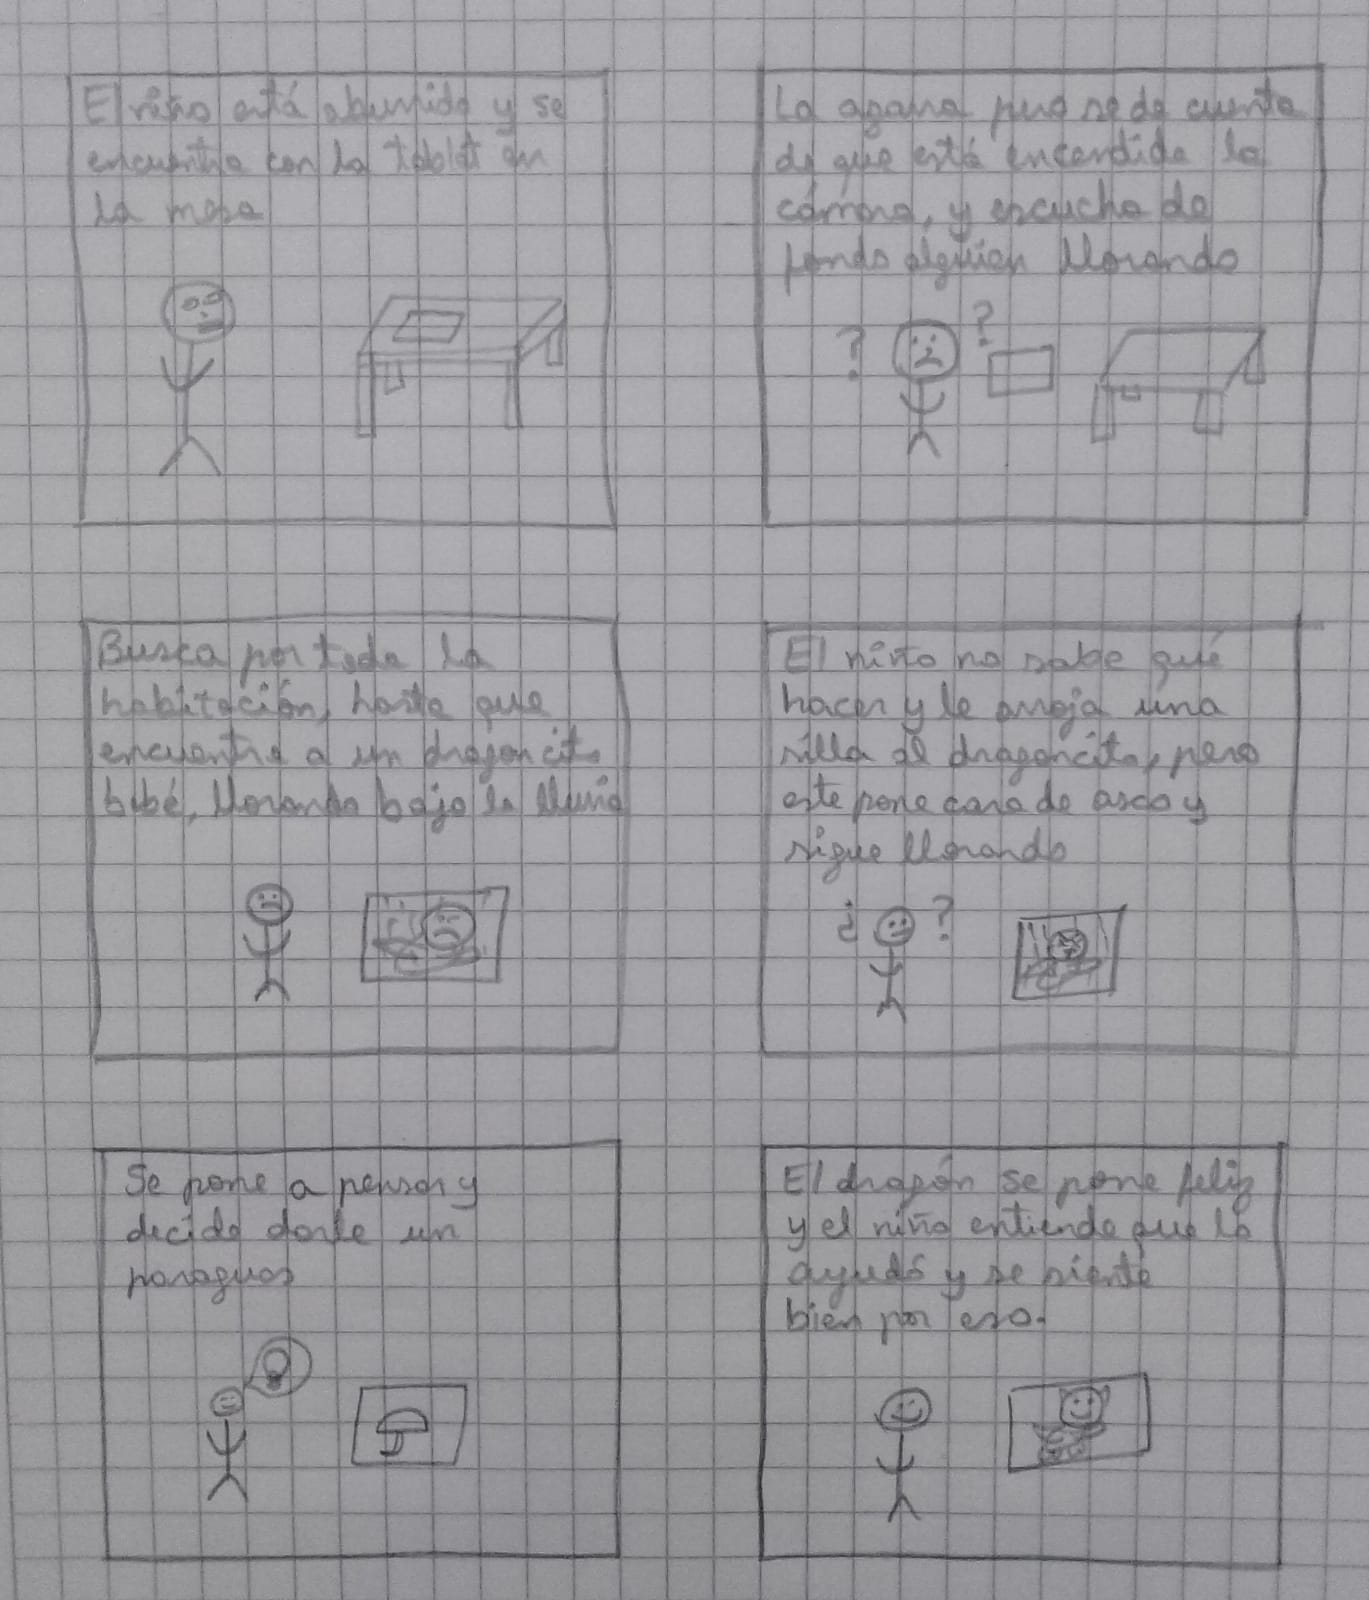 El niño está aburrido y se
encuentra con la tablet en
la mesa
La agarra pero se da cuenta
de que está encendida la
cámara, y escucha de
fondo alguien llorando
? ?
Busca por toda la
habitación, hasta que
encuentra a un dragoncito
bebé, llorando bajo la lluvia
El niño no sabe qué
hacer y le arroja una
silla al dragoncito, pero
este pone cara de asco y
sigue llorando
¿ ?
Se pone a pensar y
decide darle un
paraguas
El dragón se pone feliz
y el niño entiende que lo
ayudó y se siente
bien por eso.